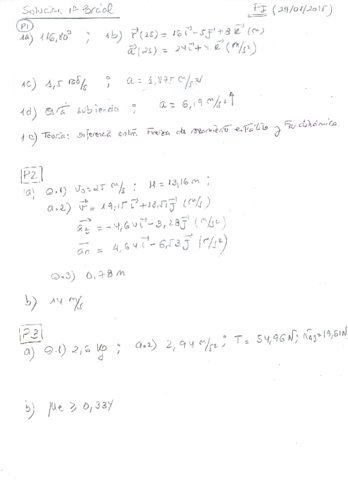 Solución 1er Parcial FI (29/01/2015)
P1
1a) 116,80° ; 1b) r⃗(2s) = 16i⃗ - 5j⃗ + 8k⃗ (m)
a⃗(2s) = 24i⃗ + k⃗ (m/s²)
1c) 1,5 rad/s ; a = 1,875 m/s²
1d) Está subiendo ; a = 6,19 m/s² ↑
1e) Teoría: diferencia entre fuerza de rozamiento estática y Fr dinámica
P2
a) a.1) v₀ = 25 m/s ; H = 13,16 m ;
a.2) v⃗ = 19,15i⃗ + 13,51j⃗ (m/s)
a⃗t = -4,64i⃗ - 3,28j⃗ (m/s²)
a⃗n = 4,64i⃗ - 6,53j⃗ (m/s²)
a.3) 0,78 m
b) 14 m/s
P3
a) a.1) 2,6 kg ; a.2) 2,94 m/s² ; T = 54,96 N ; =19,61N
b) μe ≥ 0,334